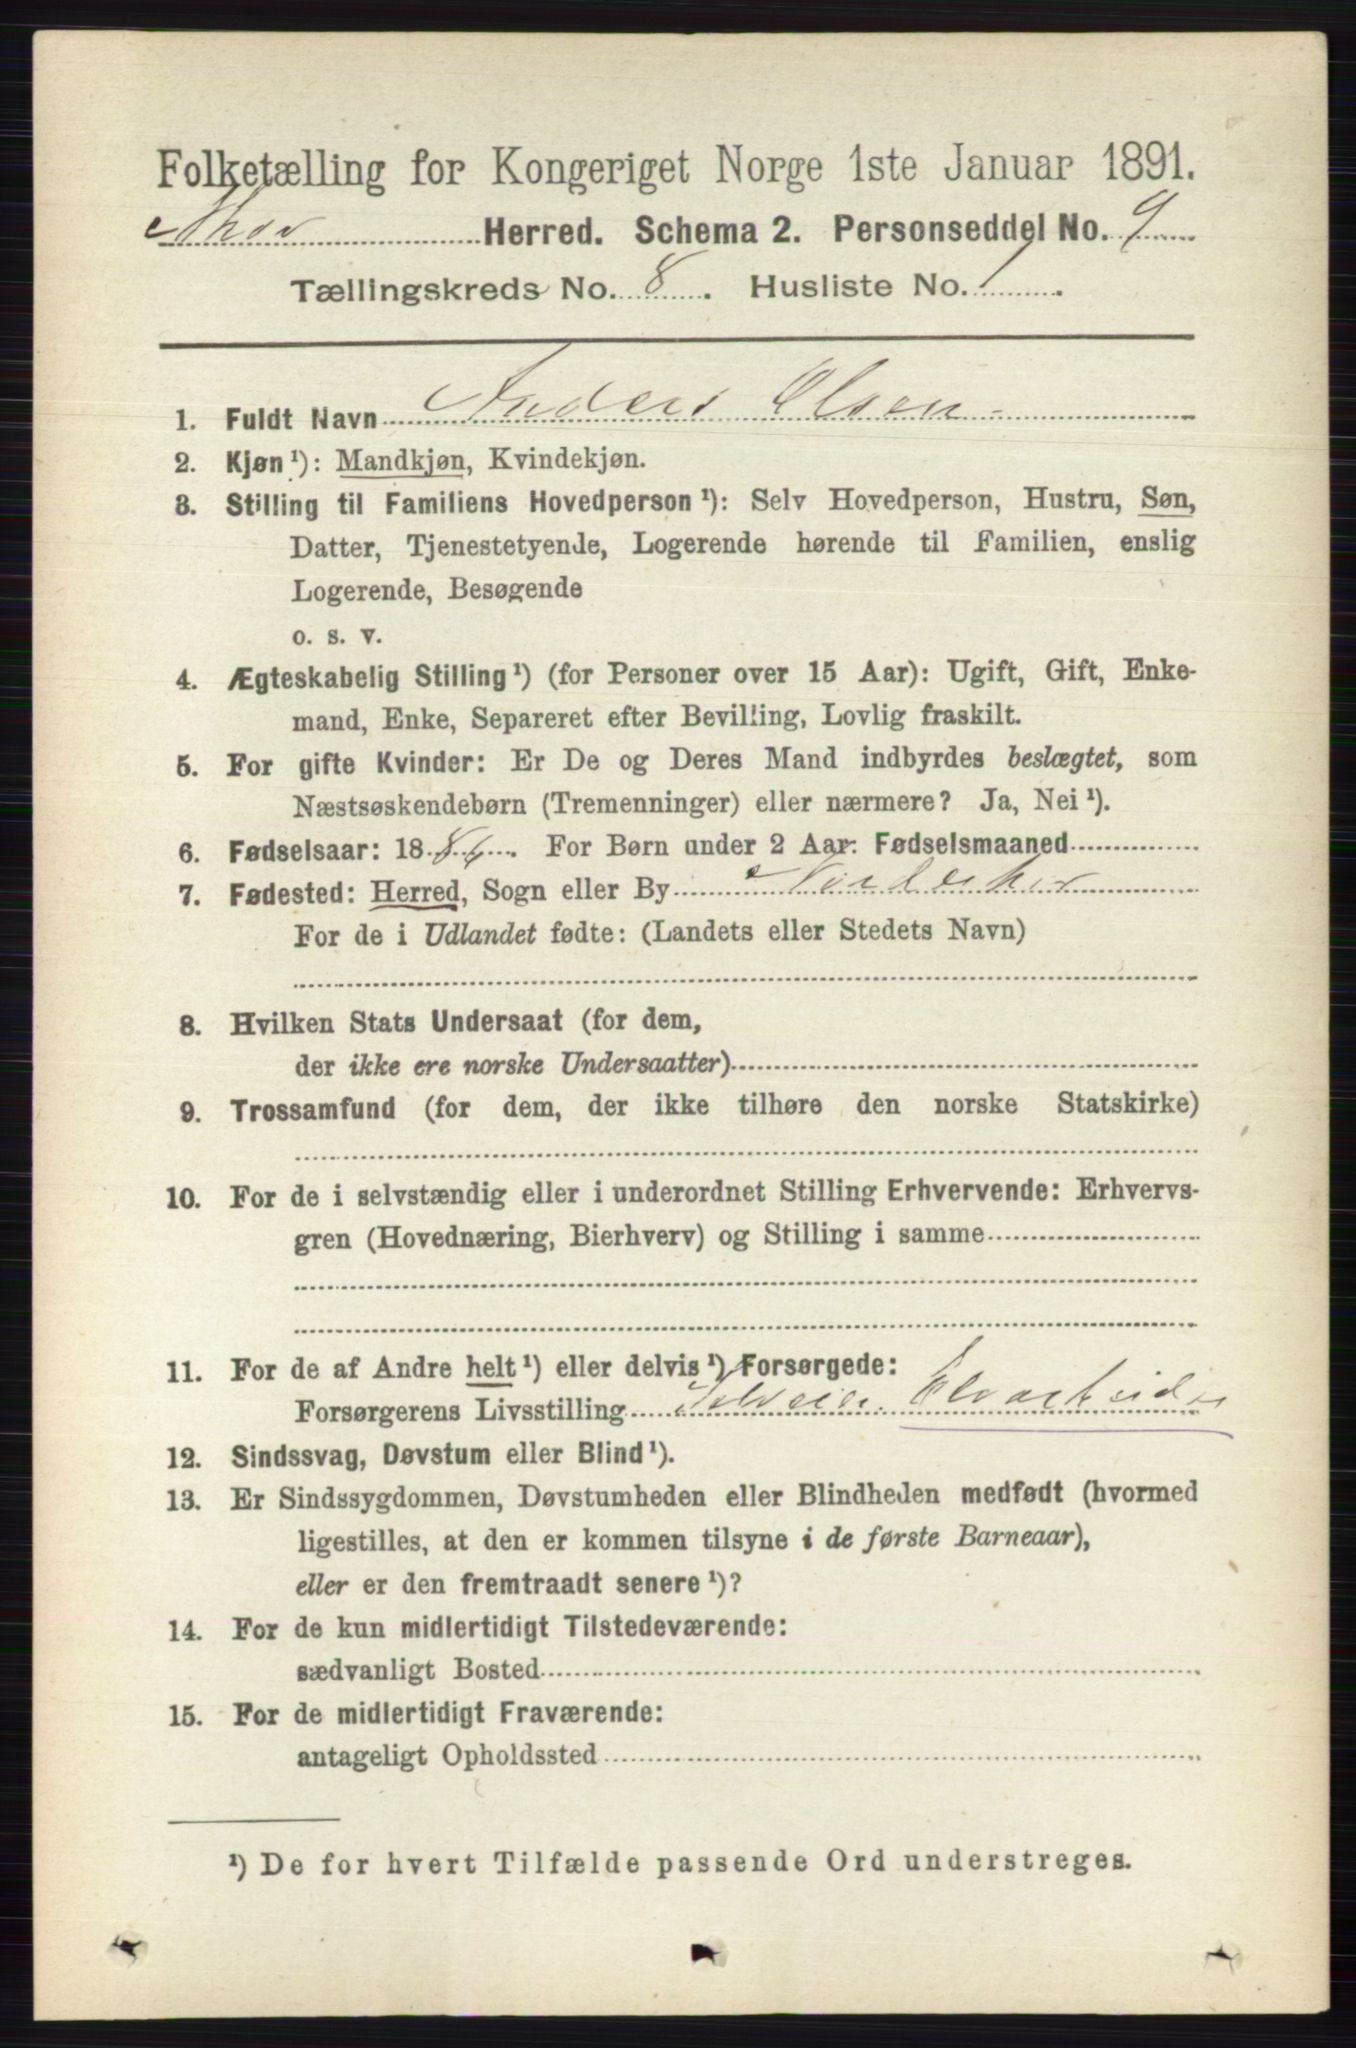 Folketælling for Kongeriget Norge 1ste Januar 1891.
Herred. Schema 2. Personseddel No. 9
Tællingskreds No. 8. Husliste No. 1.
1. Fuldt Navn Anders Olsen
2. Kjøn ¹): Mandkjøn, Kvindekjøn.
3. Stilling til Familiens Hovedperson ¹): Selv Hovedperson, Hustru, Søn,
Datter, Tjenestetyende, Logerende hørende til Familien, enslig
Logerende, Besøgende
o. s. v.
4. Ægteskabelig Stilling ¹) (for Personer over 15 Aar): Ugift, Gift, Enke-
mand, Enke, Separeret efter Bevilling, Lovlig fraskilt.
5. For gifte Kvinder: Er De og Deres Mand indbyrdes beslægtet, som
Næstsøskendebørn (Tremenninger) eller nærmere? Ja, Nei ¹).
6. Fødselsaar: 1886. For Børn under 2 Aar: Fødselsmaaned
7. Fødested: Herred, Sogn eller By
For de i Udlandet fødte: (Landets eller Stedets Navn)
8. Hvilken Stats Undersaat (for dem,
der ikke ere norske Undersaatter)
9. Trossamfund (for dem, der ikke tilhøre den norske Statskirke)
10. For de i selvstændig eller i underordnet Stilling Erhvervende: Erhvervs-
gren (Hovednæring, Bierhverv) og Stilling i samme
11. For de af Andre helt ¹) eller delvis ¹) Forsørgede:
Forsørgerens Livsstilling Selveier. Elvarbeider
12. Sindssvag, Døvstum eller Blind ¹).
13. Er Sindssygdommen, Døvstumheden eller Blindheden medfødt (hvormed
ligestilles, at den er kommen tilsyne i de første Barneaar),
eller er den fremtraadt senere ¹)?
14. For de kun midlertidigt Tilstedeværende:
sædvanligt Bosted
15. For de midlertidigt Fraværende:
antageligt Opholdssted
¹) De for hvert Tilfælde passende Ord understreges.